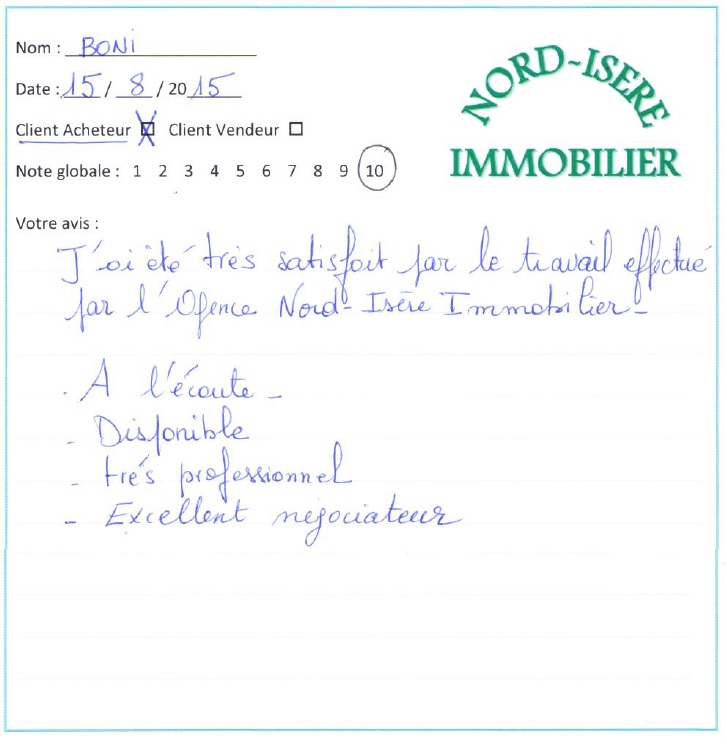 Nom : BONI
Date : 15 / 8 / 2015
Client Acheteur ☒ Client Vendeur ☐
Note globale : 1 2 3 4 5 6 7 8 9 10
NORD-ISERE
IMMOBILIER
Votre avis :
J'ai été très satisfait par le travail effectué
par l'Agence Nord-Isère Immobilier-
. A l'écoute -
- Disponible
- très professionnel
- Excellent négociateur